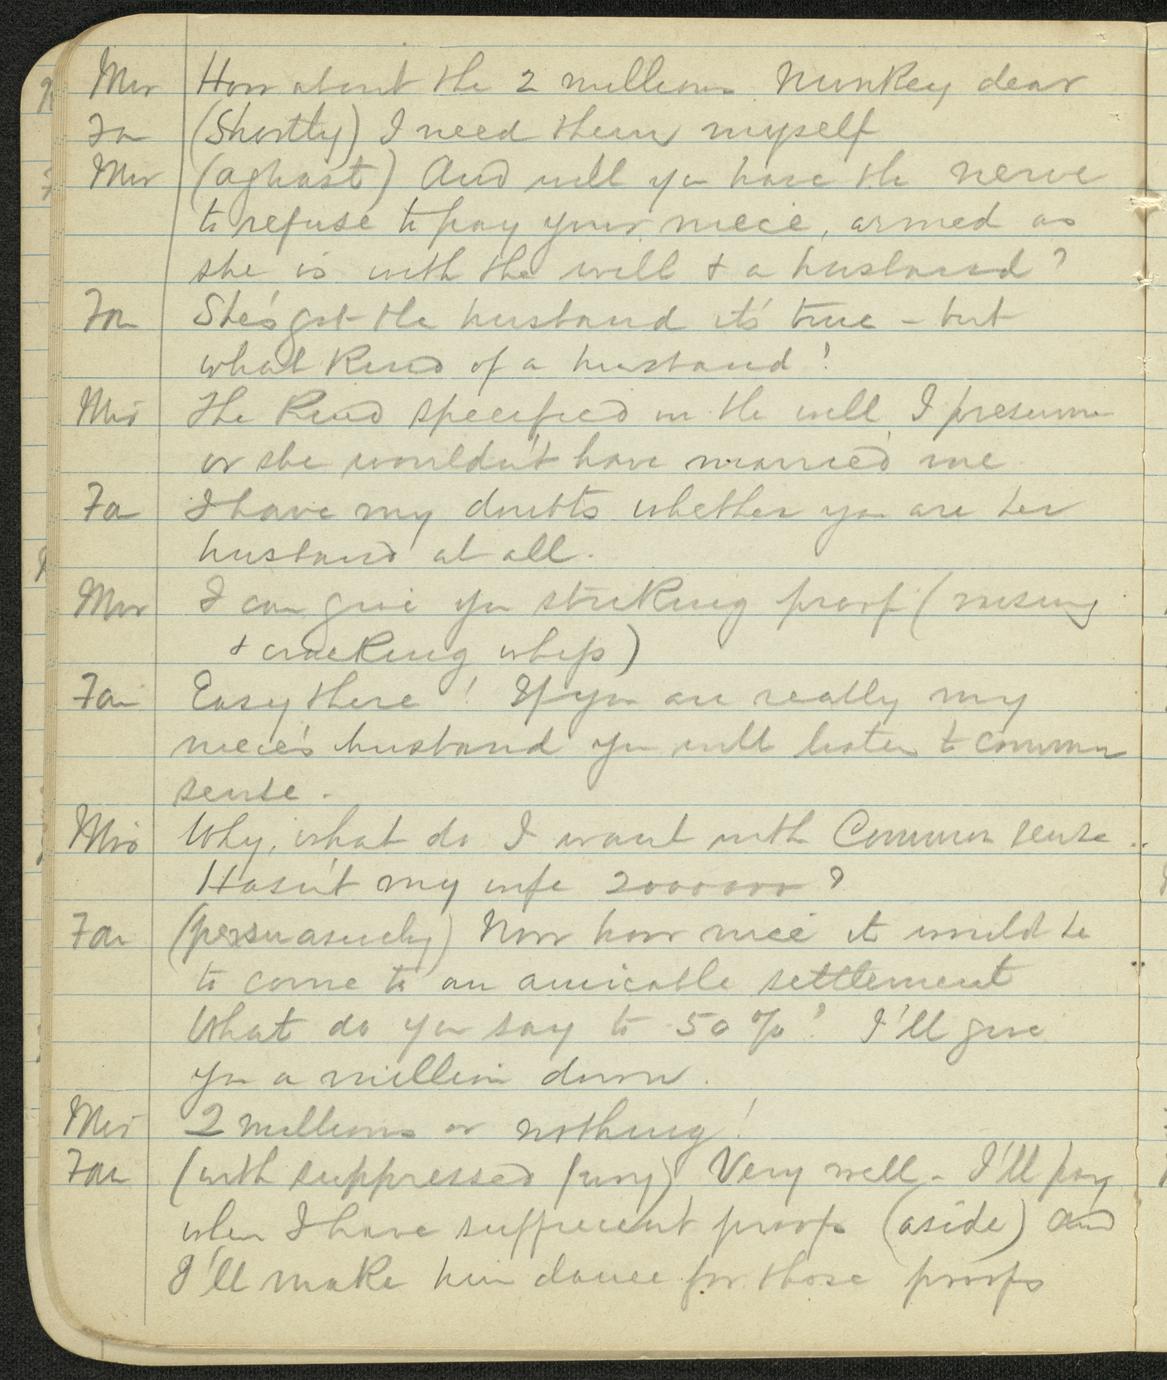 Mir How about the 2 millions Nunkey dear
Fa (Shortly) I need them myself
Mir (aghast) And will you have the nerve
to refuse to pay your niece, armed as
she is with the will & a husband?
Fa She's got the husband it's true - but
what kind of a husband!
Mir The kind specified in the will I presume
or she wouldn't have married me
Fa I have my doubts whether you are her
husband at all.
Mir I can give you striking proof (rising
& cracking whip)
Fa Easy there! If you are really my
niece's husband you will listen to common
sense.
Mir Why, what do I want with Common sense.
Hasn't my wife 2000000?
Fa (persuasively) Now how nice it would be
to come to an amicable settlement
What do you say to 50%? I'll give
you a million down.
Mir 2 millions or nothing!
Fa (with suppressed fury) Very well - I'll pay
when I have sufficient proofs (aside) and
I'll make him dance for those proofs